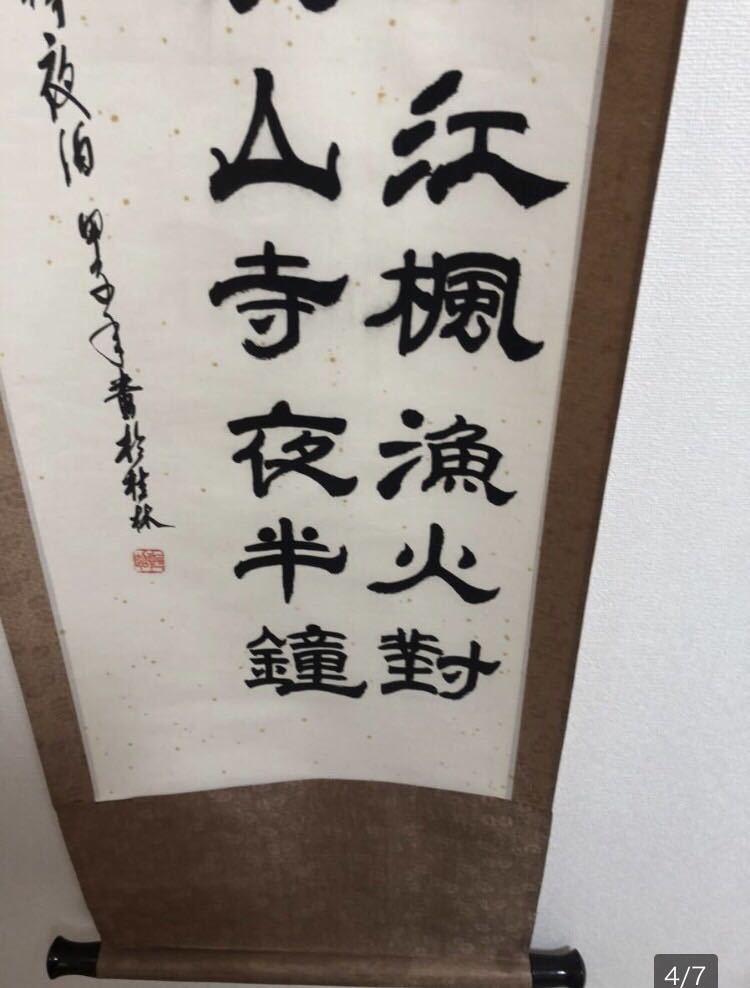 江楓漁火對
山寺夜半鐘
夜泊 甲子年書於桂林
4/7